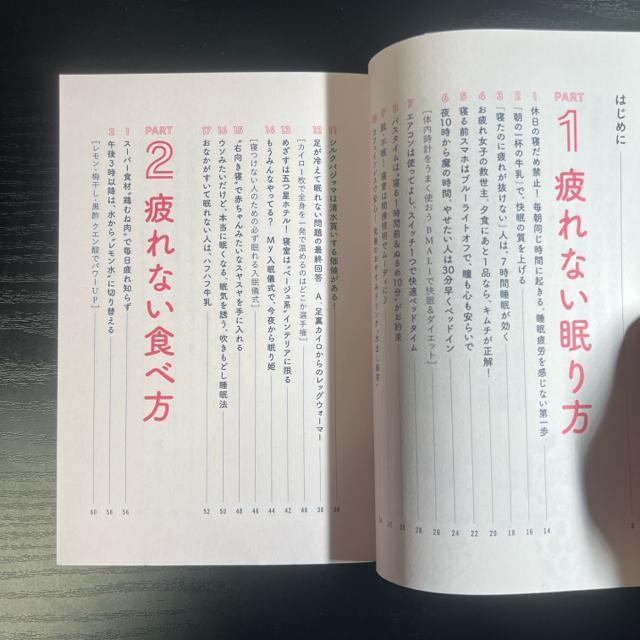 はじめに 2
PART
1 疲れない眠り方
1 休日の寝だめ禁止！ 毎朝同じ時間に起きる。睡眠疲労を感じない第一歩 14
2 「朝の一杯の牛乳」で、快眠の質を上げる 16
3 「寝たのに疲れが抜けない」人は、7時間睡眠が効く 18
4 お疲れ女子の救世主。夕食にあと1品なら、キムチが正解！ 20
5 寝る前スマホはブルーライトオフで、瞳も心も安らいで 22
6 夜10時から魔の時間。やせたい人は30分早くベッドイン 24
［体内時計をうまく使おう BMAL-1で快眠&ダイエット］ 26
7 エアコンは使ってよし。スイッチ1つで快適ベッドタイム 28
8 バスタイムは“寝る1時間前&ぬるめ10分”がお約束
9 脱・不眠！ 寝室は間接照明でムーディに♪
11 シルクパジャマは清水買いする価値がある！ 36
12 足が冷えて眠れない問題の最終回答 A、足裏カイロからのレッグウォーマー 38
［カイロ1枚で全身を一発で温めるのはどこか選手権］ 40
13 めざすは五つ星ホテル！ 寝室は“ベージュ系”インテリアに限る 42
14 もうみんなやってる？ MY入眠儀式で、今夜から眠り姫 44
［寝つけない人のための必ず眠れる入眠儀式］ 46
15 “右向き寝”で赤ちゃんみたいなスヤスヤを手に入れる 48
16 ウソみたいだけど、本当に眠くなる。眠気を誘う、吹きもどし睡眠法 50
17 おなかがすいて眠れない人は、ハフハフ牛乳 52
PART
2 疲れない食べ方
1 スーパー食材“鶏むね肉”で毎日疲れ知らず 56
2 午後3時以降は、水から“レモン水”に切り替える 58
［レモン・梅干し・黒酢 クエン酸でパワーUP］ 60